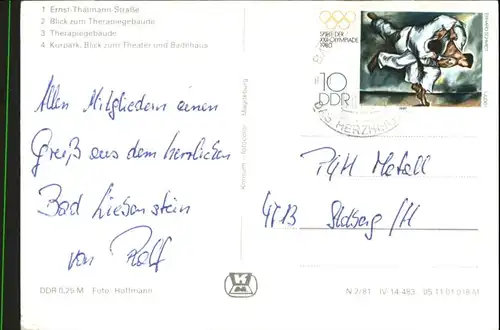 1 Ernst-Thälmann-Straße
2 Blick zum Therapiegebäude
3 Therapiegebäude
4 Kurpark, Blick zum Theater und Badehaus
Allen Mitgliedern einen
Gruß aus dem herrlichen
Bad Liebenstein
von Rolf
DDR 0,25 M Foto: Hoffmann
Konsum fotocolor Magdeburg
SPIELE DER
XXII. OLYMPIADE
1980
10
DDR
DES HERZHEIL
PGH Metall
Stolberg/H
N 2/81 IV-14-483 05 11 01 018 M